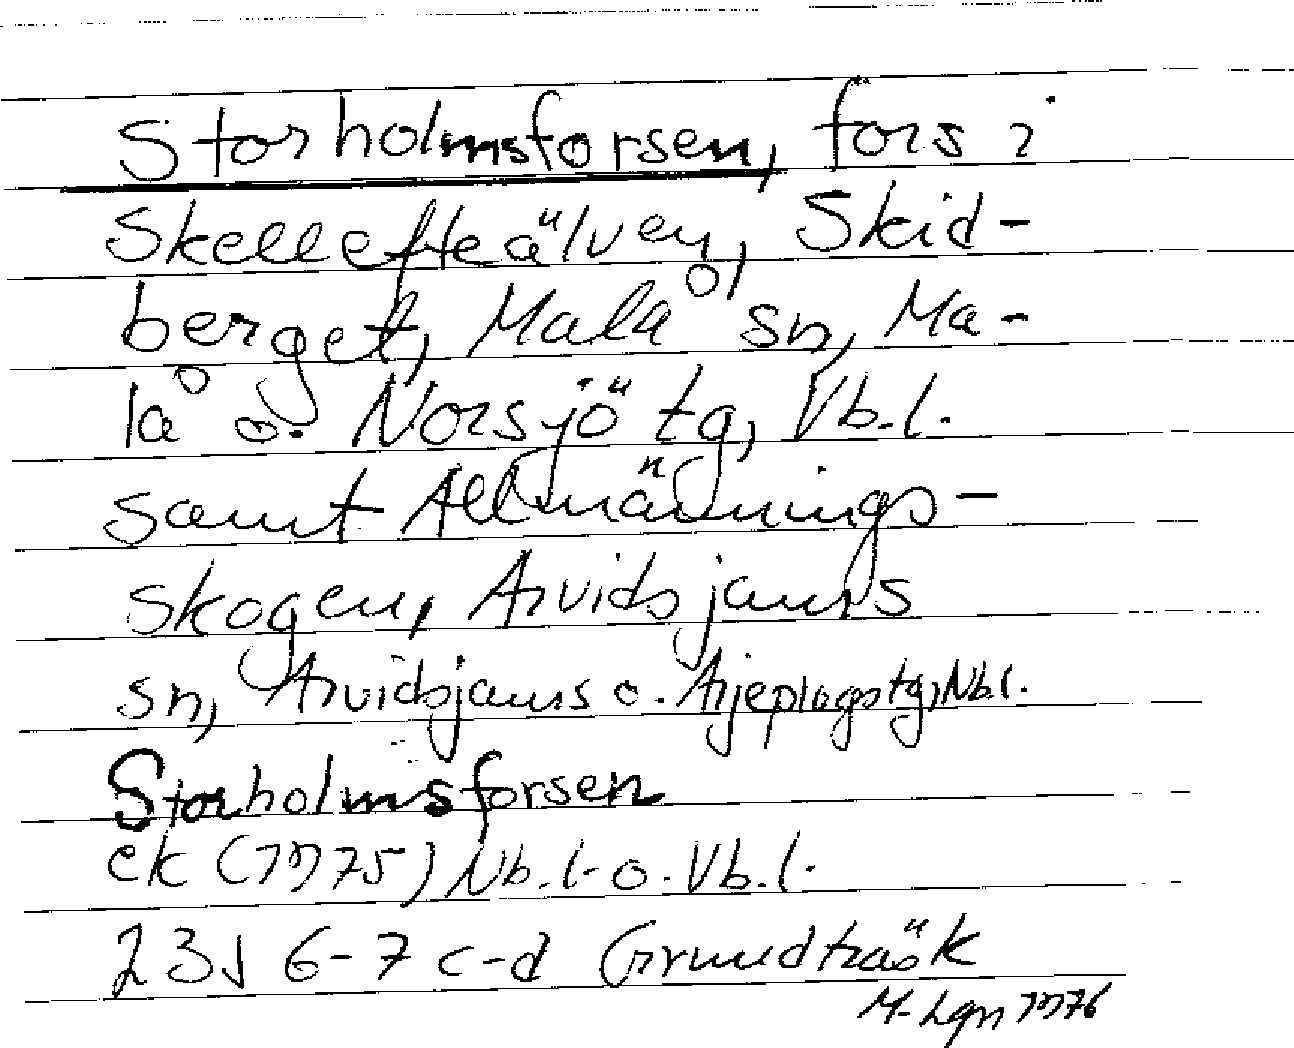 Storholmsforsen, fors i
Skellefteälven, Skid-
berget, Malå sn, Ma-
lå o. Norsjö tg, Vb.l.
samt Allmännings-
skogen, Arvidsjaurs
sn, Arvidsjaurs o. Arjeplogs tg, Nb.l.
Storholmsforsen
ek (1975) Nb.l. o. Vb.l.
23J 6-7 c-d Grundträsk
M. Lgn 1976